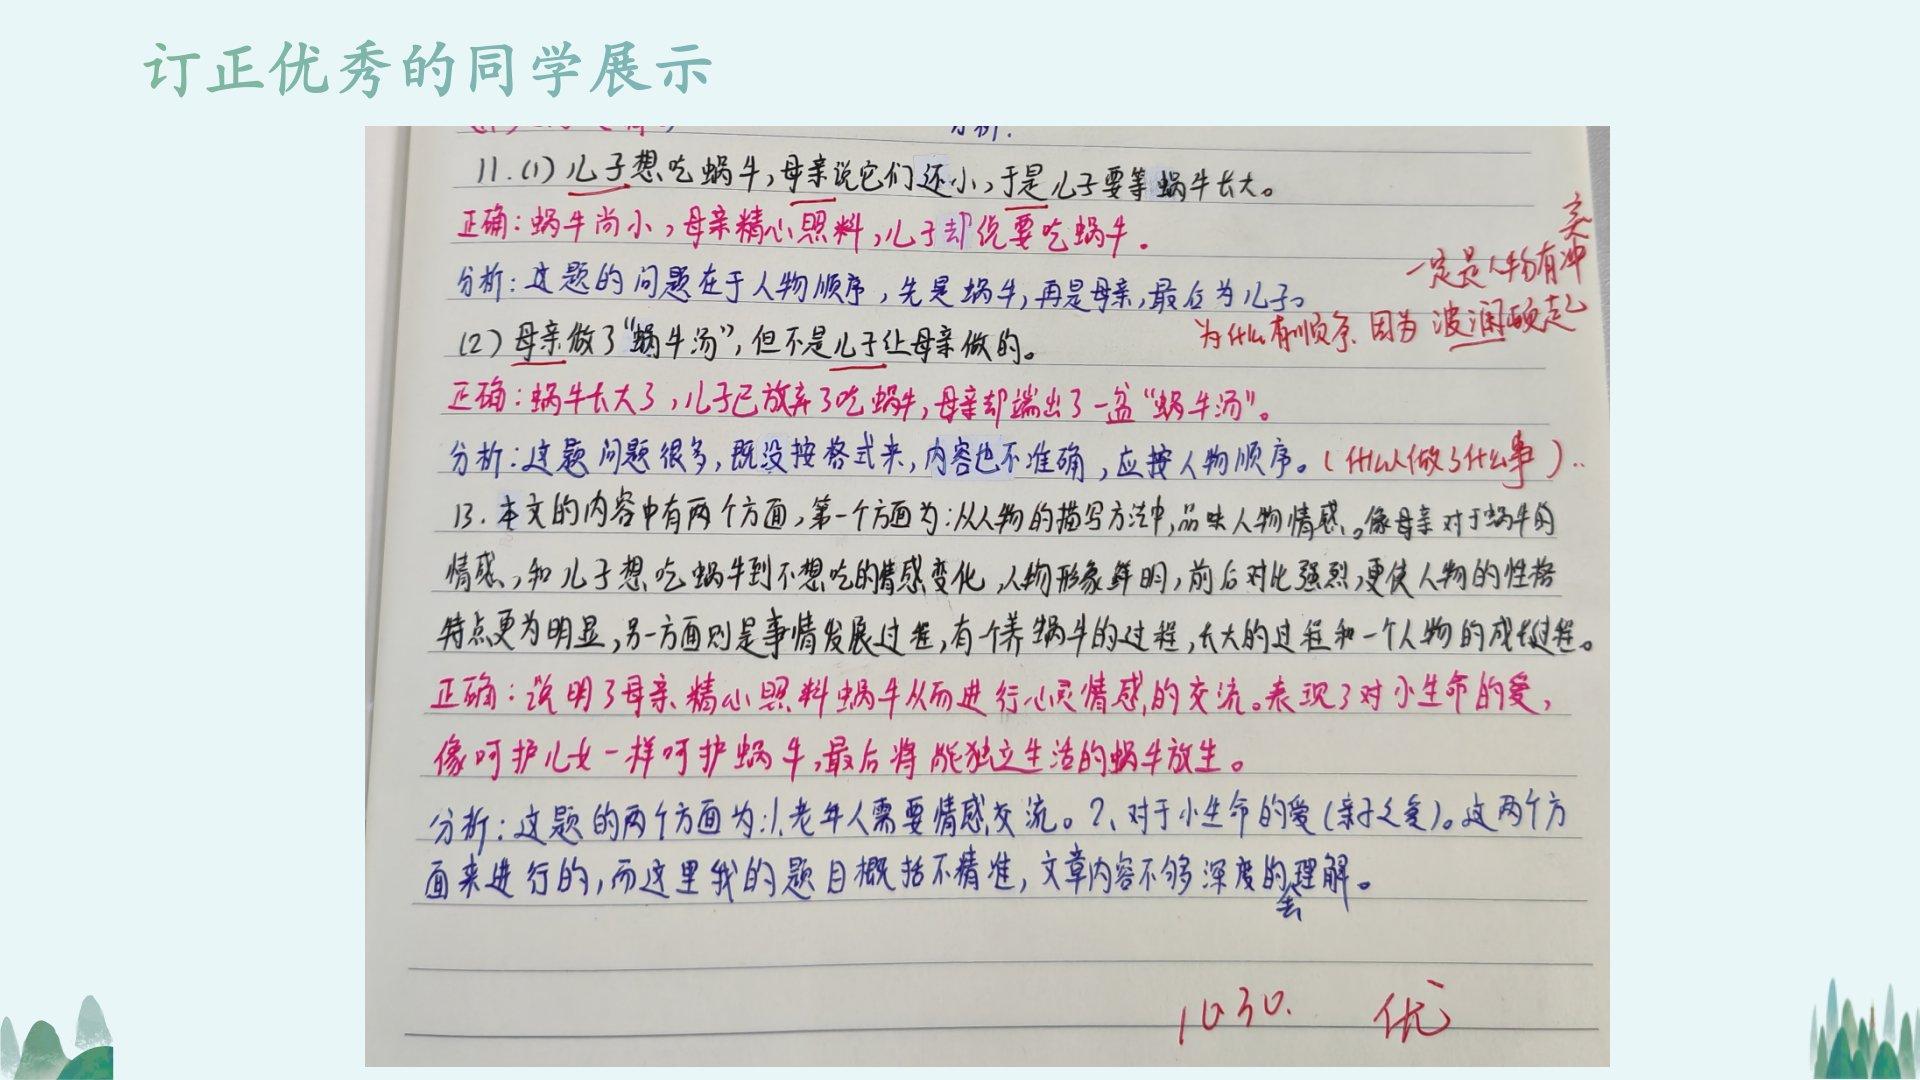 订正优秀的同学展示
分析：
11.(1)儿子想吃蜗牛，母亲说它们还小，于是儿子要等蜗牛长大。
正确：蜗牛尚小，母亲精心照料，儿子却说要吃蜗牛。
突
一定是人物有冲
分析：这题的问题在于人物顺序，先是蜗牛，再是母亲，最后为儿子。
为什么有顺序 因为 波澜硕起
(2)母亲做了“蜗牛汤”，但不是儿子让母亲做的。
正确：蜗牛长大了，儿子已放弃了吃蜗牛，母亲却端出了一盆“蜗牛汤”。
分析：这题问题很多，既没按格式来，内容也不准确，应按人物顺序。(什么人做了什么事)..
13.本文的内容中有两个方面，第一个方面为：从人物的描写方法中，品味人物情感。像母亲对于蜗牛的
情感，和儿子想吃蜗牛到不想吃的情感变化，人物形象鲜明，前后对比强烈，更使人物的性格
特点更为明显，另一方面则是事情发展过程，有一个养蜗牛的过程，长大的过程和一个人物的成长过程。
正确：说明了母亲精心照料蜗牛从而进行心灵情感的交流。表现了对小生命的爱，
像呵护儿女一样呵护蜗牛，最后将能独立生活的蜗牛放生。
分析：这题的两个方面为：1.老年人需要情感交流。2、对于小生命的爱(亲子之爱)。这两个方
面来进行的，而这里我的题目概括不精准，文章内容不够深度的理解。
去
1030. 优